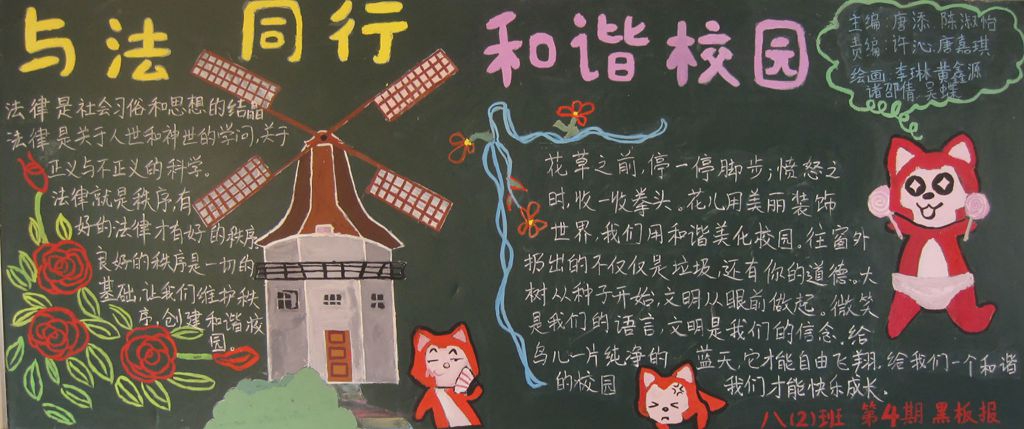 与法同行
和谐校园
主编:唐添 陈淑怡
责编:许沁 唐嘉琪
绘画:李琳 黄鑫源
诸邵倩 吴蝶
法律是社会习俗和思想的结晶
法律是关于人世和神世的学问,关于
正义与不正义的科学。
法律就是秩序,有
好的法律才有好的秩序
良好的秩序是一切的
基础,让我们维护秩
序,创建和谐校
园。
花草之前,停一停脚步;愤怒之
时,收一收拳头。花儿用美丽装饰
世界,我们用和谐美化校园。往窗外
扔出的不仅仅是垃圾,还有你的道德。大
树从种子开始,文明从眼前做起。微笑
是我们的语言,文明是我们的信念。给
鸟儿一片纯净的 蓝天,它才能自由飞翔,给我们一个和谐
的校园 我们才能快乐成长。
八(2)班 第4期黑板报